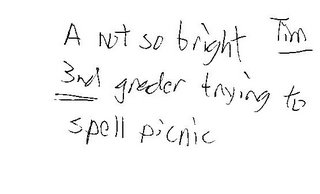 A not so bright Tim
3rd grader trying to
spell picnic